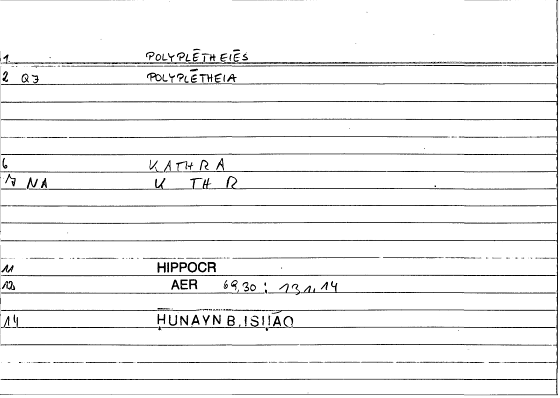 1 POLYPLĒTHEIĒS
2 Q3 POLYPLĒTHEIA
6 KATHRA
7 NA K TH R
11 HIPPOCR
12 AER 69,30 : 131,14
14 ḤUNAYN B. ISḤĀQ